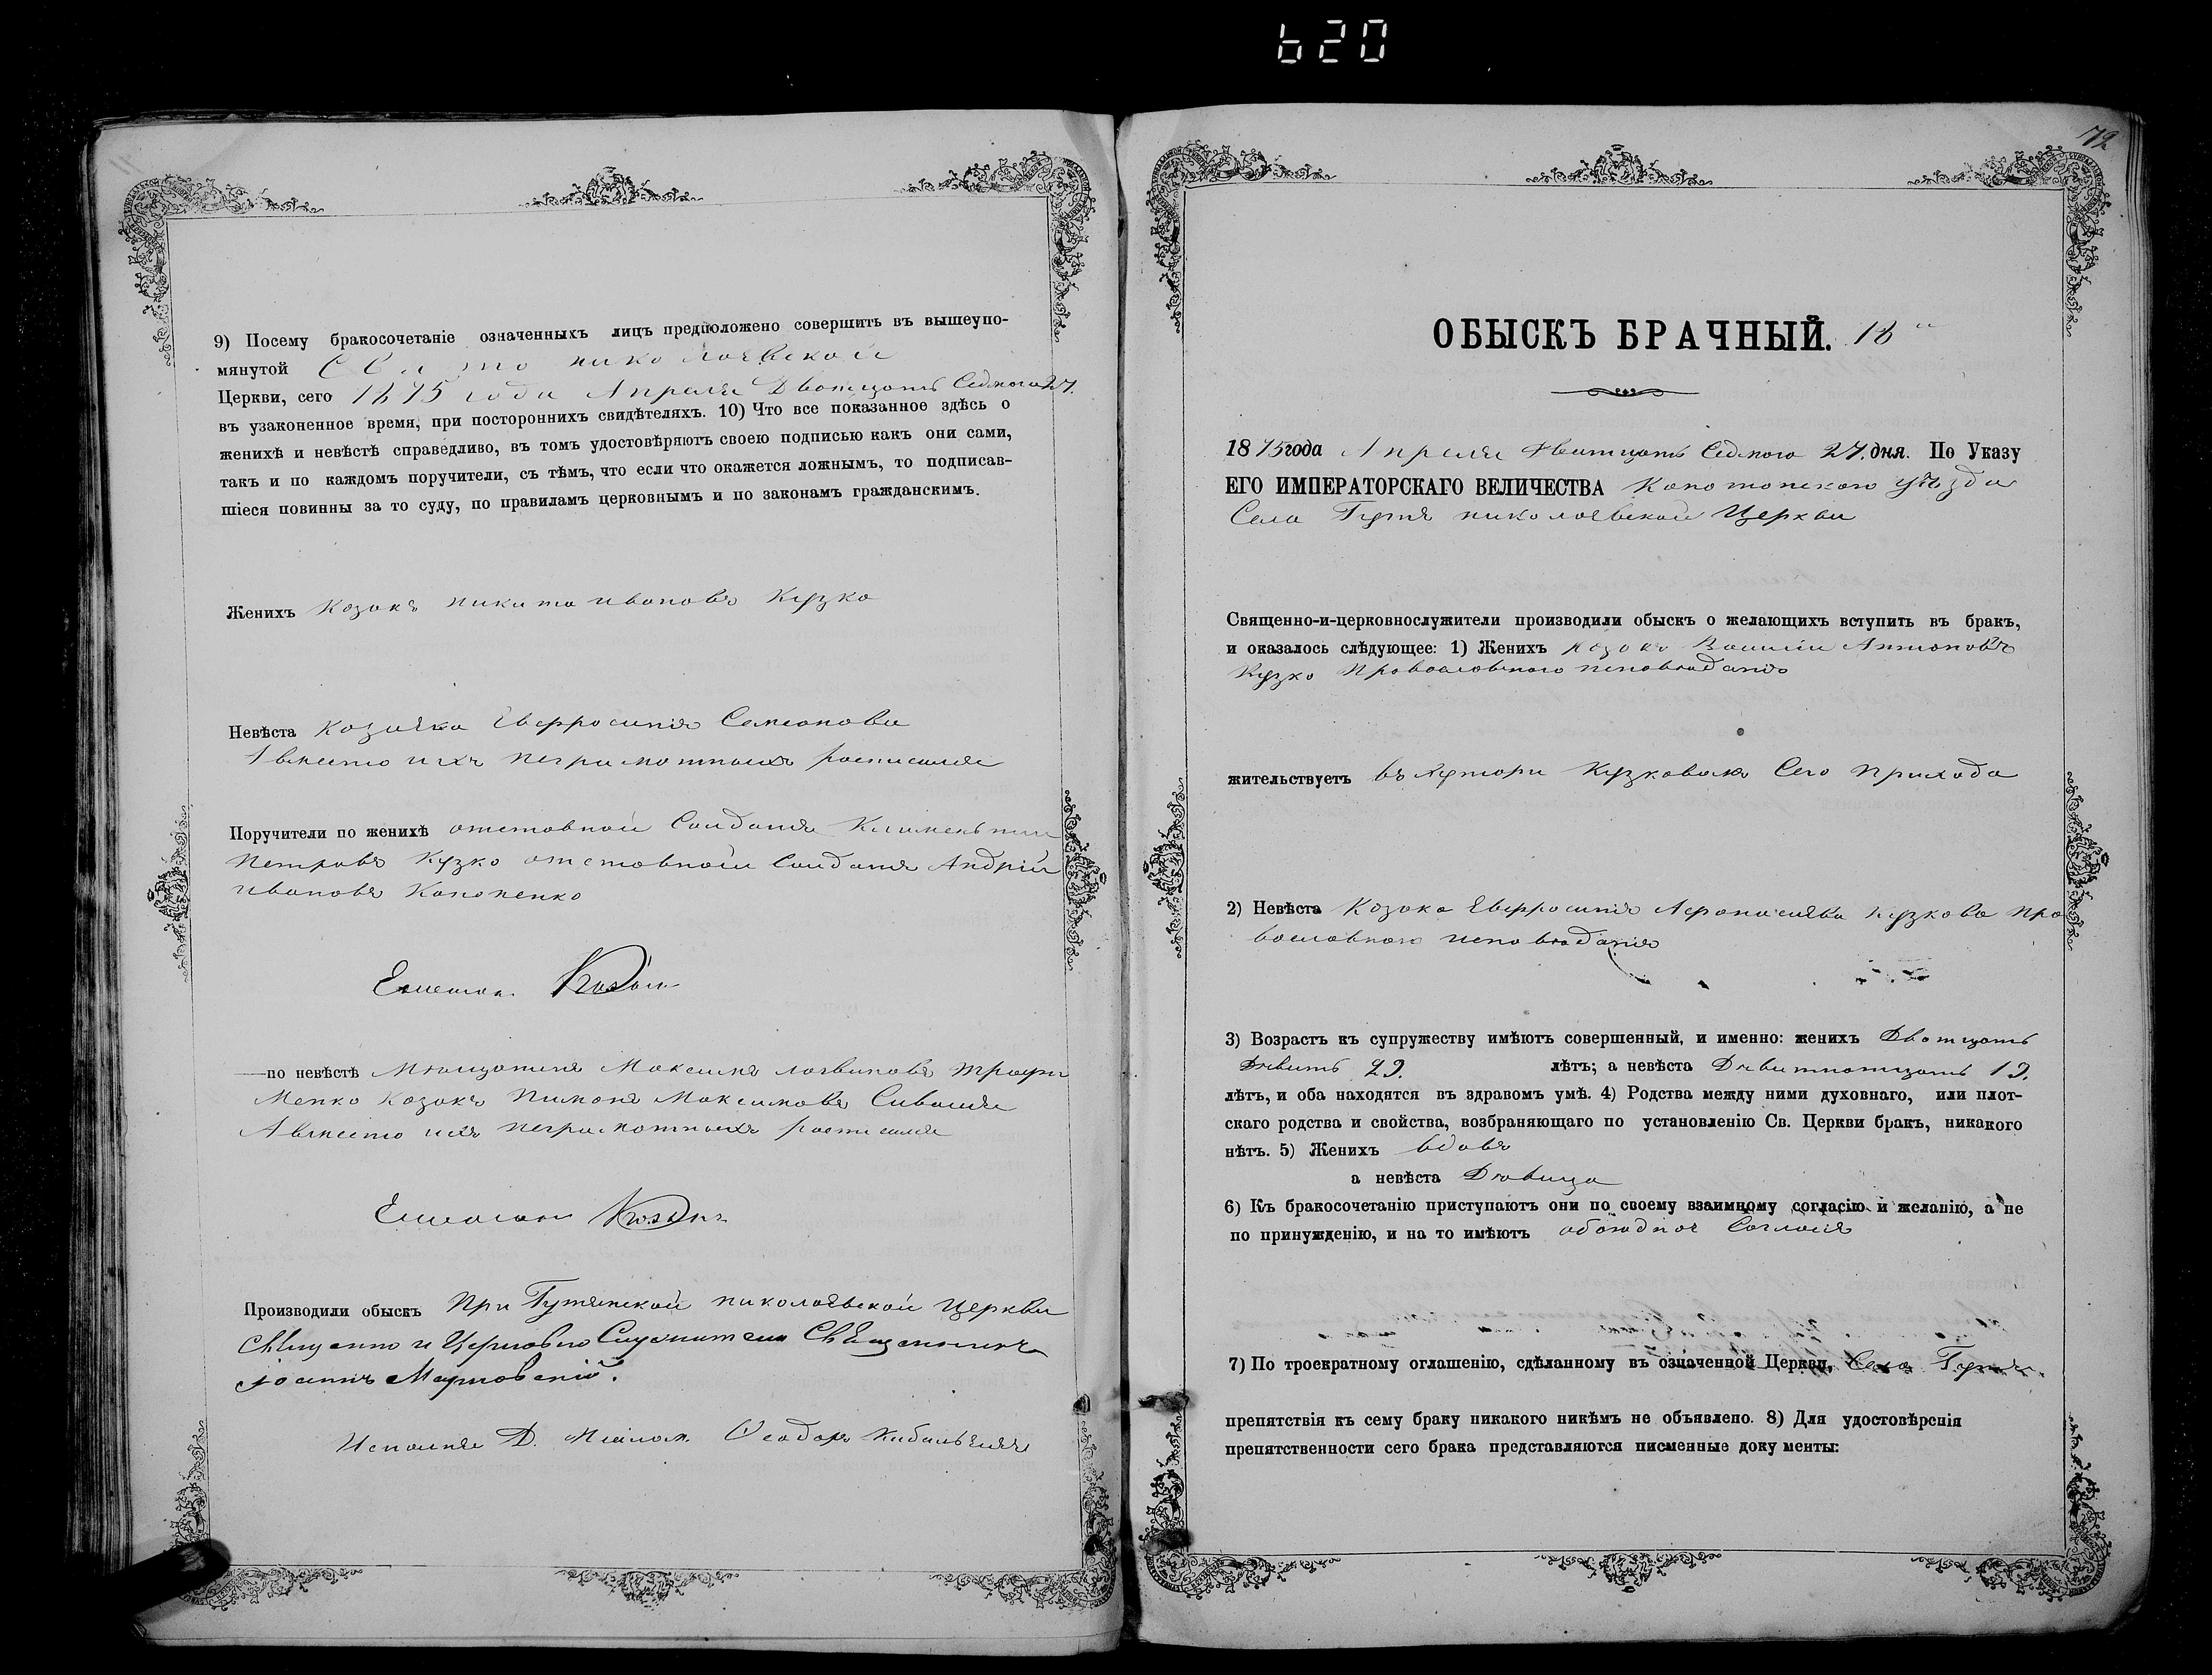 620
9) Посему бракосочетаніе означенныхъ лицъ предположено совершить въ вышеупо-
мянутой Свято николаевской
Церкви, сего 1875 года Апреля Дватцать Седмого 27.
въ узаконенное время, при постороннихъ свидѣтеляхъ. 10) Что все показанное здѣсь о
женихѣ и невѣстѣ справедливо, въ томъ удостовѣряютъ своею подписью какъ они сами,
такъ и по каждомъ поручители, съ тѣмъ, что если что окажется ложнымъ, то подписав-
шіеся повинны за то суду, по правиламъ церковнымъ и по законамъ гражданскимъ.
Женихъ Козакъ никита ивановъ Кузко
Невѣста Козачка Евфросинія Семіонова
А вместо ихъ неграмотныхъ росписался
Поручители по женихѣ отставной Салдатъ Климентий
Петровъ Кузко отставной Салдатъ Андрій
ивановъ Кононенко
по невѣстѣ Мѣщанинъ Максимъ логвиновъ трофи
менко Козакъ Пимонъ Максимовъ
А вместо ихъ неграмотныхъ росписался
Производили обыскъ При Гутянской николаевской церкви
Священно и Церковно Служители Священникъ
Іоаннъ
72
ОБЫСКЪ БРАЧНЫЙ. 18й
1875 года Апреля Дватцать Седмого 27. дня. По Указу
ЕГО ИМПЕРАТОРСКАГО ВЕЛИЧЕСТВА Конотопского уѣзда
Села Гутъ николаевской Церкви
Священно-и-церковнослужители производили обыскъ о желающихъ вступить въ бракъ,
и оказалось слѣдующее: 1) Женихъ козакъ Антоновъ
Кузко Православного исповѣданія
жительствуетъ въ хутори Кузковомъ Сего прихода
2) Невѣста Козачка Евфросинія Афанасиева Кузкова пра
вославного исповѣданія
3) Возрастъ къ супружеству имѣютъ совершенный, и именно: женихъ Дватцать
Девить 29. лѣтъ; а невѣста Девитнатцать 19.
лѣтъ, и оба находятся въ здравомъ умѣ. 4) Родства между ними духовнаго, или плот-
скаго родства и свойства, возбраняющаго по установленію Св. Церкви бракъ, никакого
нѣтъ. 5) Женихъ вдовъ
а невѣста Дѣвица
6) Къ бракосочетанію приступаютъ они по своему взаимному согласію и желанію, а не
по принужденію, и на то имѣютъ обоюдное Согласіе
7) По троекратному оглашенію, сдѣланному въ означенной Церкви, Села Гутъ
препятствія къ сему браку никакого никѣмъ не объявлено. 8) Для удостовѣренія
препятственности сего брака представляются писменные доку менты: